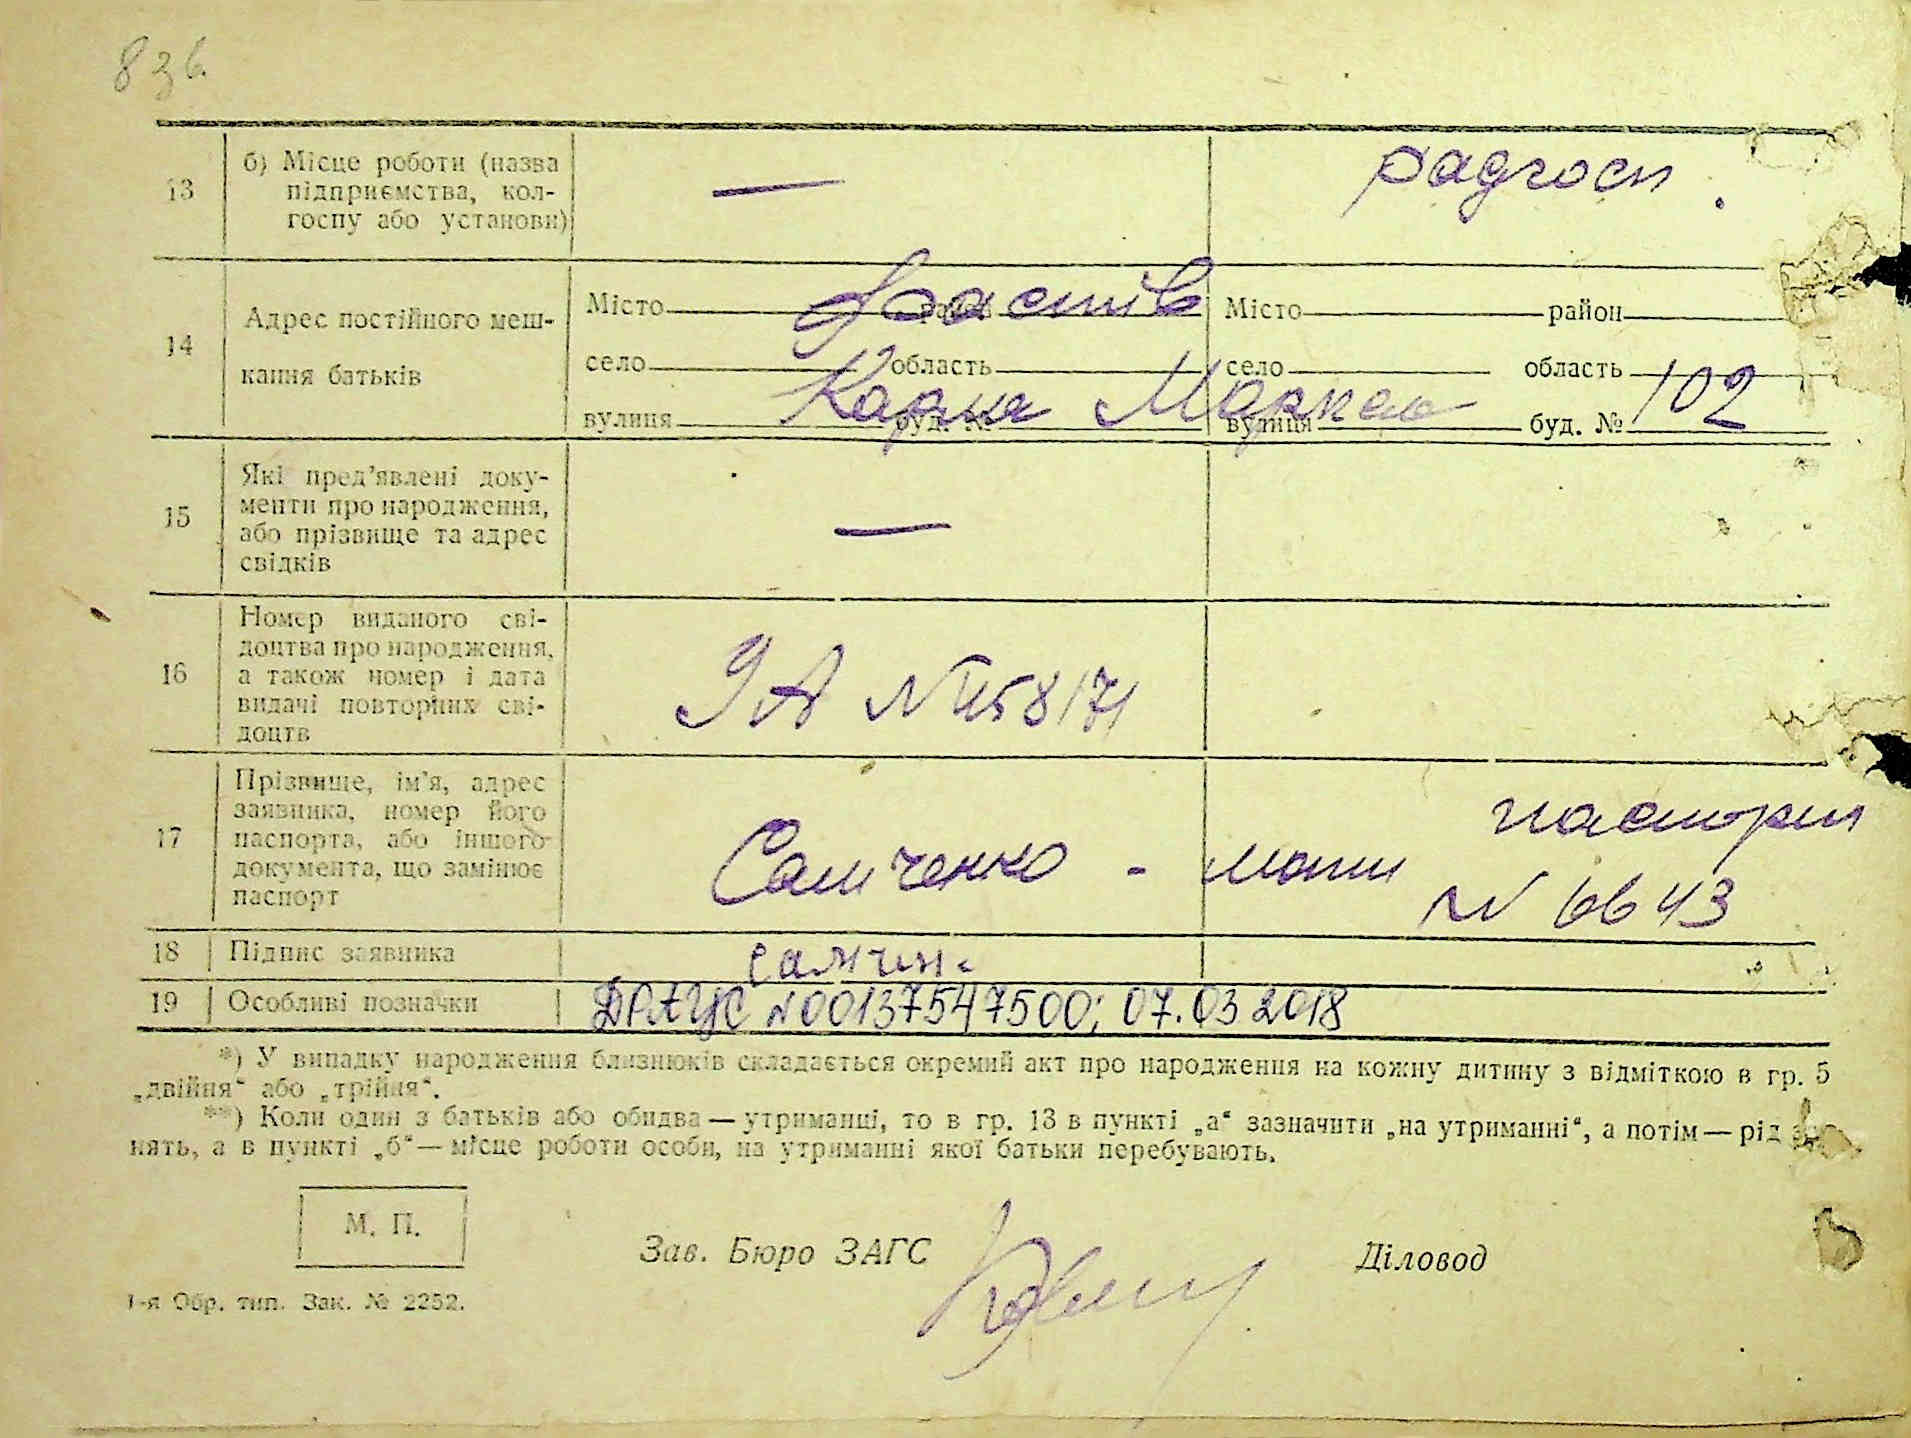 8 зв.
13
б) Місце роботи (назва
підприємства, кол-
госпу або установи)
—
радгосп.
14
Адрес постійного меш-
кання батьків
Місто район Фастів Місто район
село область село область
вулиця буд. № Карла Маркса вулиця буд. № 102
15
Які пред'явлені доку-
менти про народження,
або прізвище та адрес
свідків
—
16
Номер виданого сві-
доцтва про народження,
а також номер і дата
видачі повторних сві-
доцтв
УА № 458171
17
Прізвище, ім'я, адрес
заявника, номер його
паспорта, або іншого
документа, що замінює
паспорт
Самченко - мати паспорт
№ 6643
18 Підпис заявника
Самчен.
19 Особливі позначки ДРАЦС №00137547500; 07.03 2018
*) У випадку народження близнюків складається окремий акт про народження на кожну дитину з відміткою в гр. 5
„двійня“ або „трійня“.
**) Коли один з батьків або обидва — утриманці, то в гр. 13 в пункті „а“ зазначити „на утриманні“, а потім — рід
нять, а в пункті „б“ — місце роботи особи, на утриманні якої батьки перебувають.
М. П.
Зав. Бюро ЗАГС
Діловод
1-я Обр. тип. Зак. № 2252.